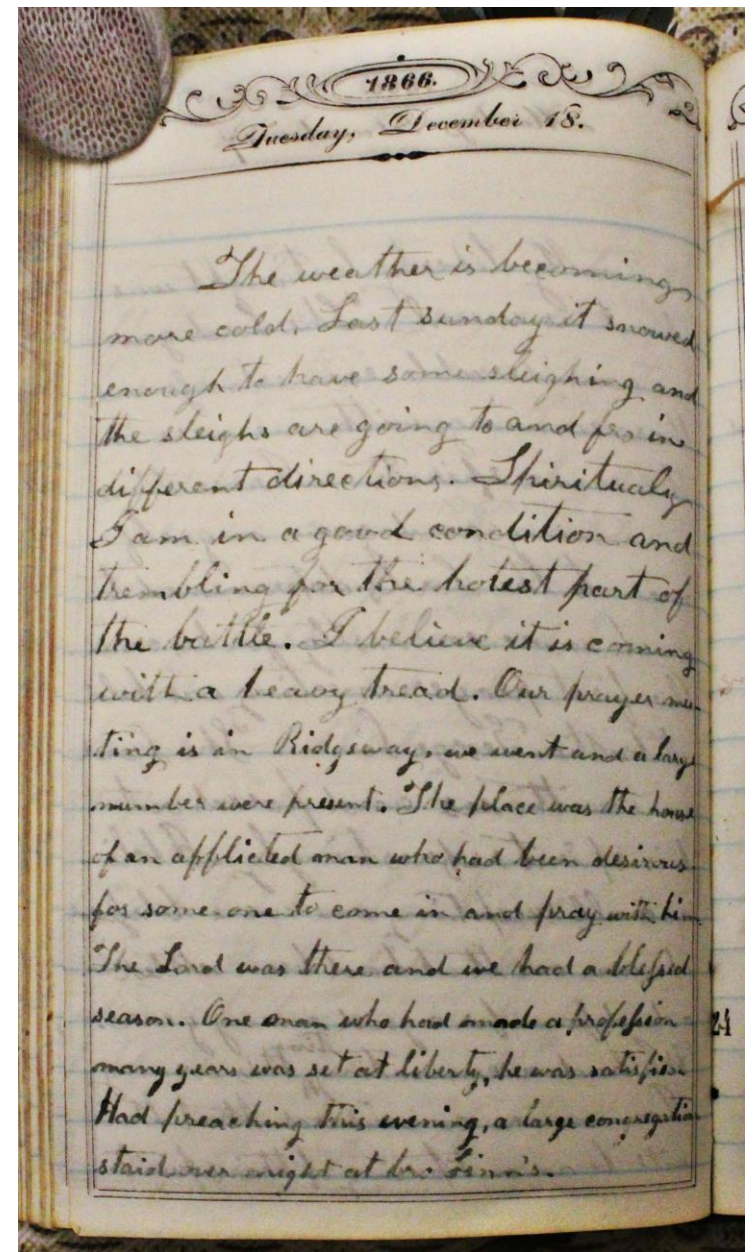 1866.
Tuesday, December 18.
The weather is becoming
more cold. Last sunday it snowed
enough to have some sleighing and
the sleighs are going to and fro in
different directions. Spiritualy
I am in a good condition and
trembling for the hotest part of
the battle. I believe it is coming
with a heavy tread. Our prayer mee-
ting is in Ridgeway, we went and a large
number were present. The place was the house
of an afflicted man who had been desirous
for some one to come in and pray with him
The Lord was there and we had a blessed
season. One man who had made a profession
many years was set at liberty, he was satisfied
Had preaching this evening, a large congregation
staid over night at bro
24